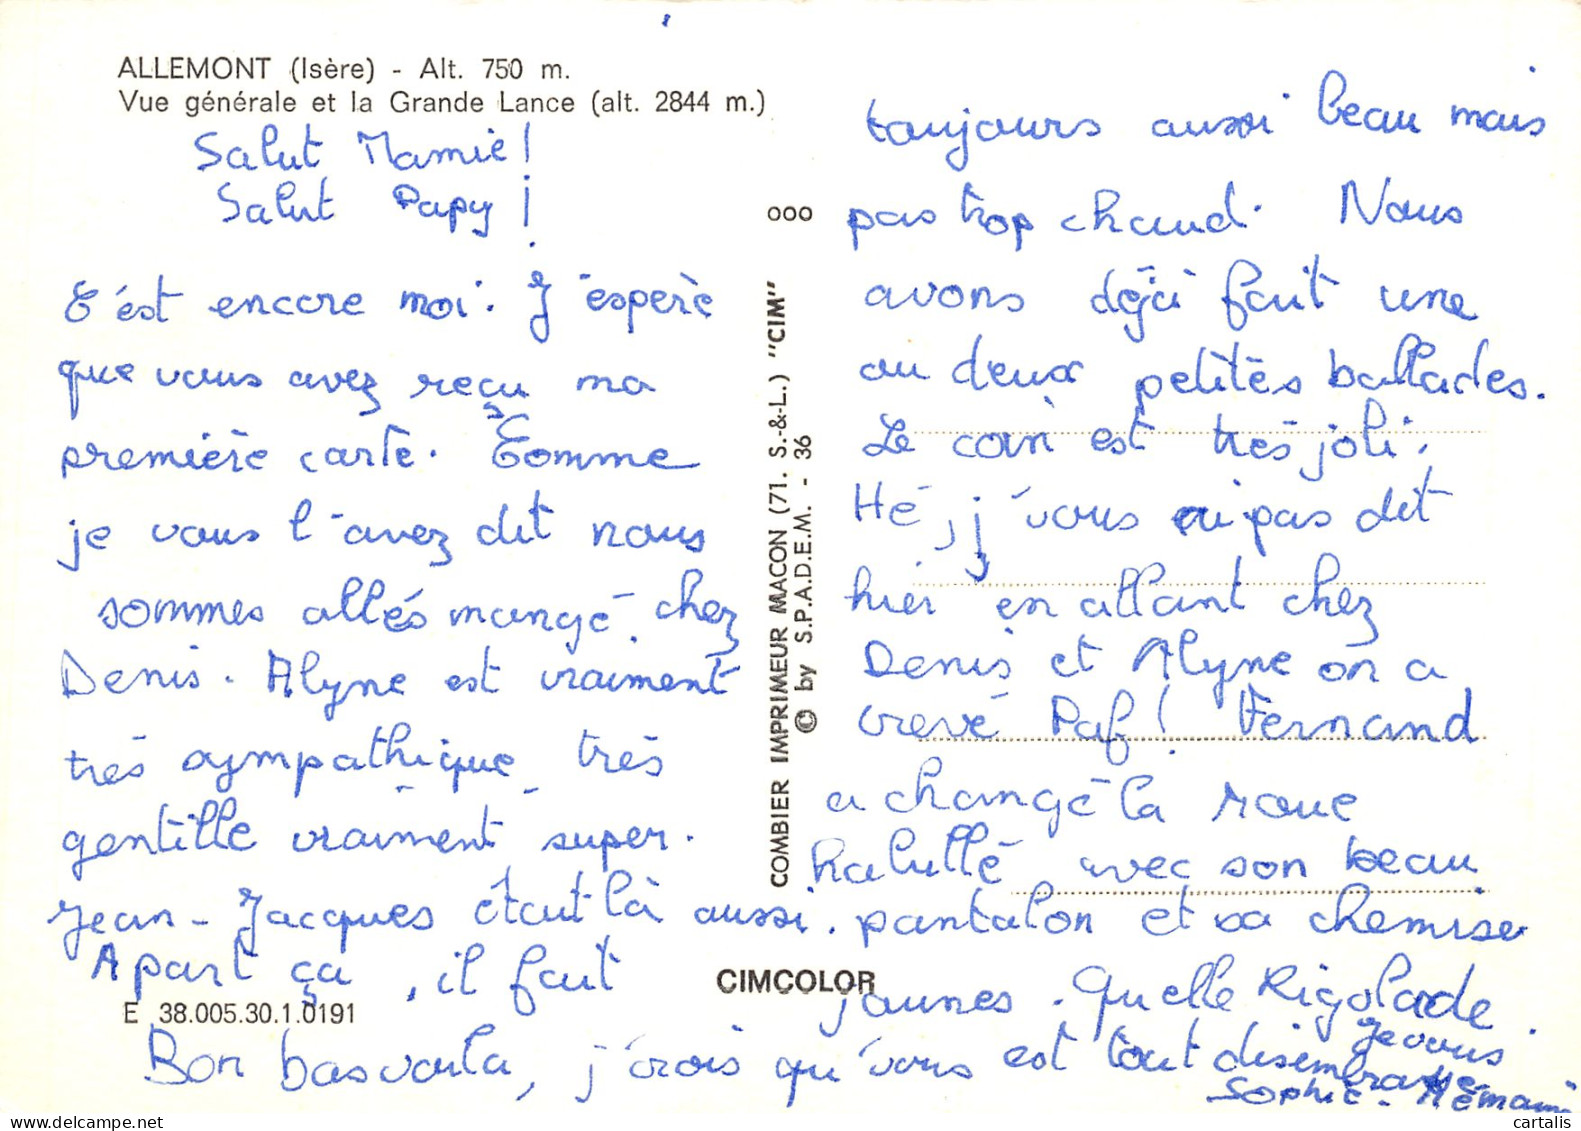 ALLEMONT (Isère) - Alt. 750 m.
Vue générale et la Grande Lance (alt. 2844 m.)
Salut Mamie !
Salut Papy !
C'est encore moi. J'espère
que vous avez reçu ma
première carte. Comme
je vous l'avez dit nous
sommes allés mangé chez
Denis. Alyne est vraiment
très sympathique très
gentille vraiment super.
Jean-Jacques était là aussi.
A part ça, il fait
toujours aussi beau mais
pas trop chaud. Nous
avons déjà fait une
ou deux petites ballades.
Le coin est très joli.
Hé, j'vous ai pas dit
hier en allant chez
Denis et Alyne on a
crevé Paf ! Fernand
a changé la roue
habillé avec son beau
pantalon et sa chemise
jaunes. Quelle Rigolade.
Bon bas voila, j'crois qu'vous est tout
Je vous
Sophie -
ooo
COMBIER IMPRIMEUR MACON (71. S.-&-L.) "CIM"
© by S.P.A.D.E.M. - 36
CIMCOLOR
E 38.005.30.1.0191
www.delcampe.net
cartalis